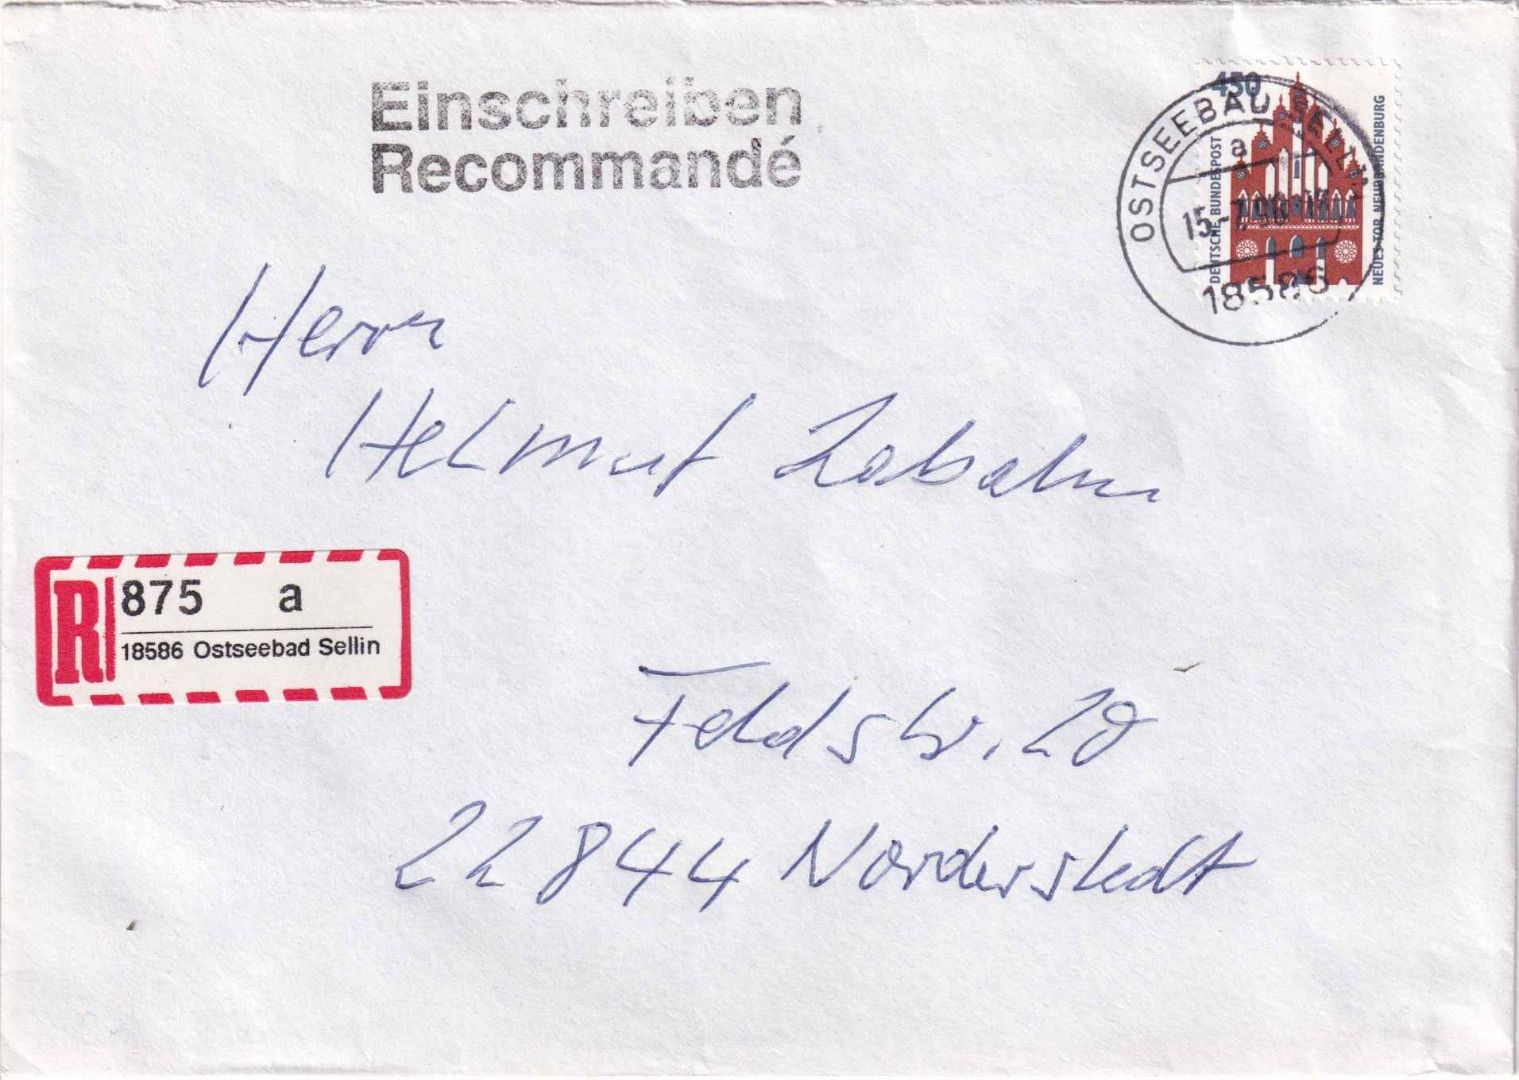 Einschreiben
Recommandé
450
DEUTSCHE BUNDESPOST
NEUES TOR NEUBRANDENBURG
OSTSEEBAD SELLIN
a
15.-7.96-17
18586
Herrn
Helmut Zabahn
R 875 a
18586 Ostseebad Sellin
Feldstr. 20
22844 Norderstedt